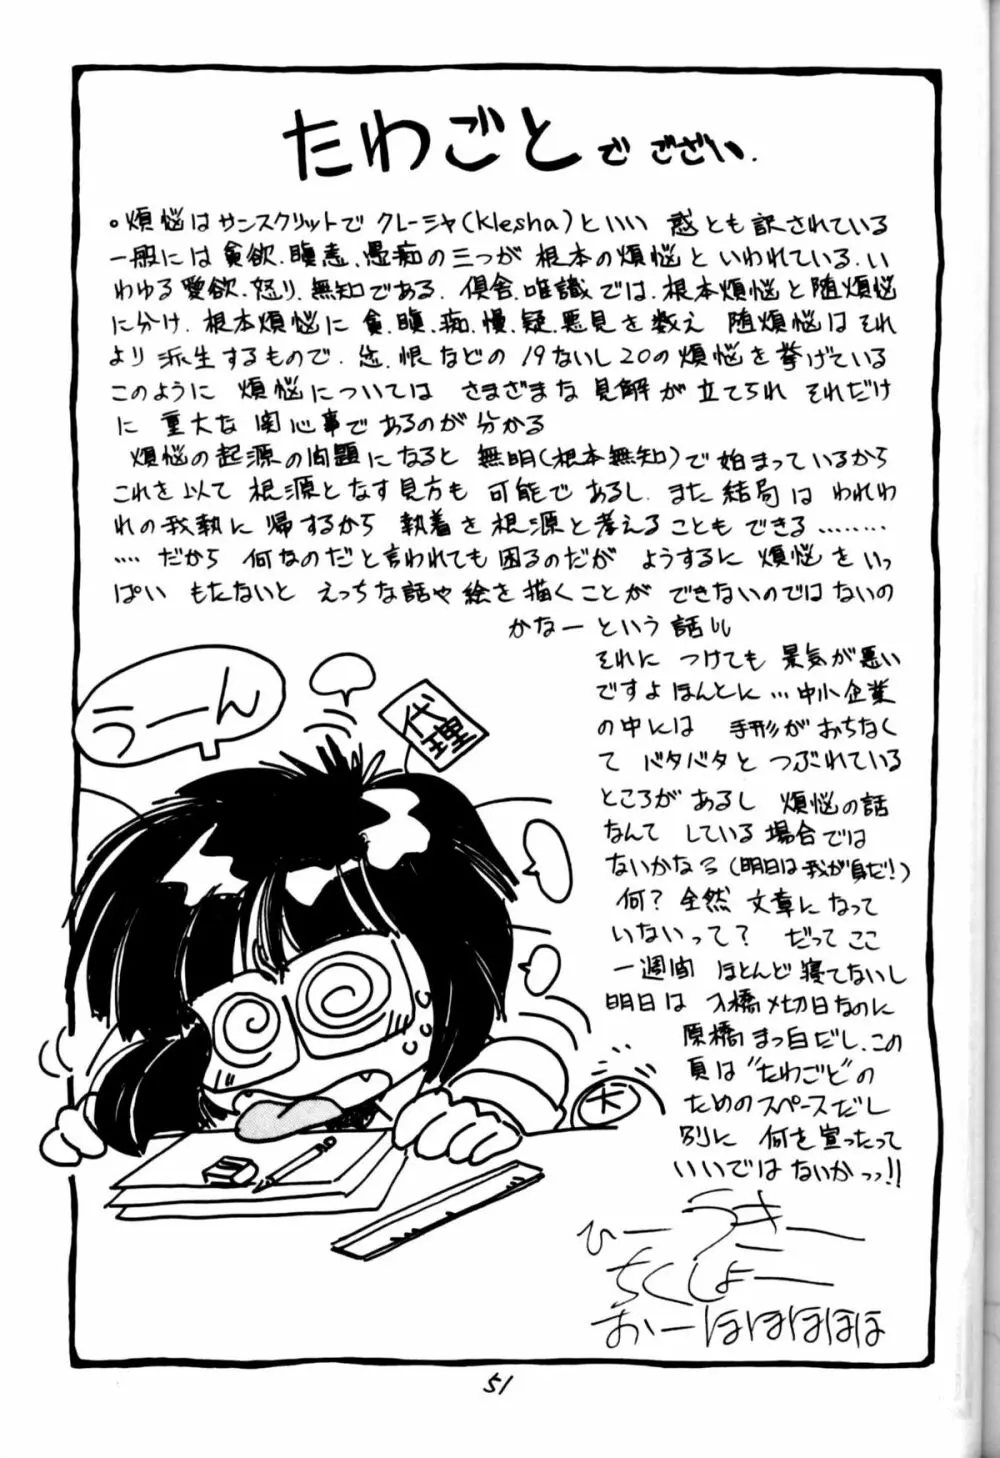 たわごとでござい.
。煩悩はサンスクリットでクレーシャ(klesha)といい 惑とも訳されている
一般には貪欲.瞋恚.愚痴の三つが 根本の煩悩といわれている.い
わゆる愛欲.怒り.無知である.倶舎.唯識では.根本煩悩と随煩悩
に分け.根本煩悩に貪.瞋.痴.慢.疑.悪見を数え 随煩悩はそれ
より派生するもので. 恨などの19ないし20の煩悩を挙げている
このように 煩悩については さまざまな見解が立てられ それだけ
に 重大な関心事であるのが分かる
煩悩の起源の問題になると 無明(根本無知)で始まっているから
これを以て 根源となす見方も可能であるし.また結局はわれわ
れの我執に 帰するから 執着を根源と考えることもできる………
…‥だから 何なのだと言われても困るのだが ようするに 煩悩をいっ
ぱい もたないと えっちな話や絵を描くことが できないのではないの
かなーという話し
それに つけても 景気が悪い
ですよほんとに…中小企業
の中には 手形がおちなく
て バタバタと つぶれている
ところがあるし 煩悩の話
なんて している場合では
ないかなろ(明日は我が身だ!)
何?全然 文章になって
いないって? だってここ
一週間 ほとんど寝てないし
明日は 入橋〆切日なのに
原橋まっ白だし.この
頁は"たわごと"の
ためのスペースだし
別に 何を宣ったって
いいではないかっっ!!
うーん
代理
大
ひーうきー
ちくしょー
おーほほほほほ
51